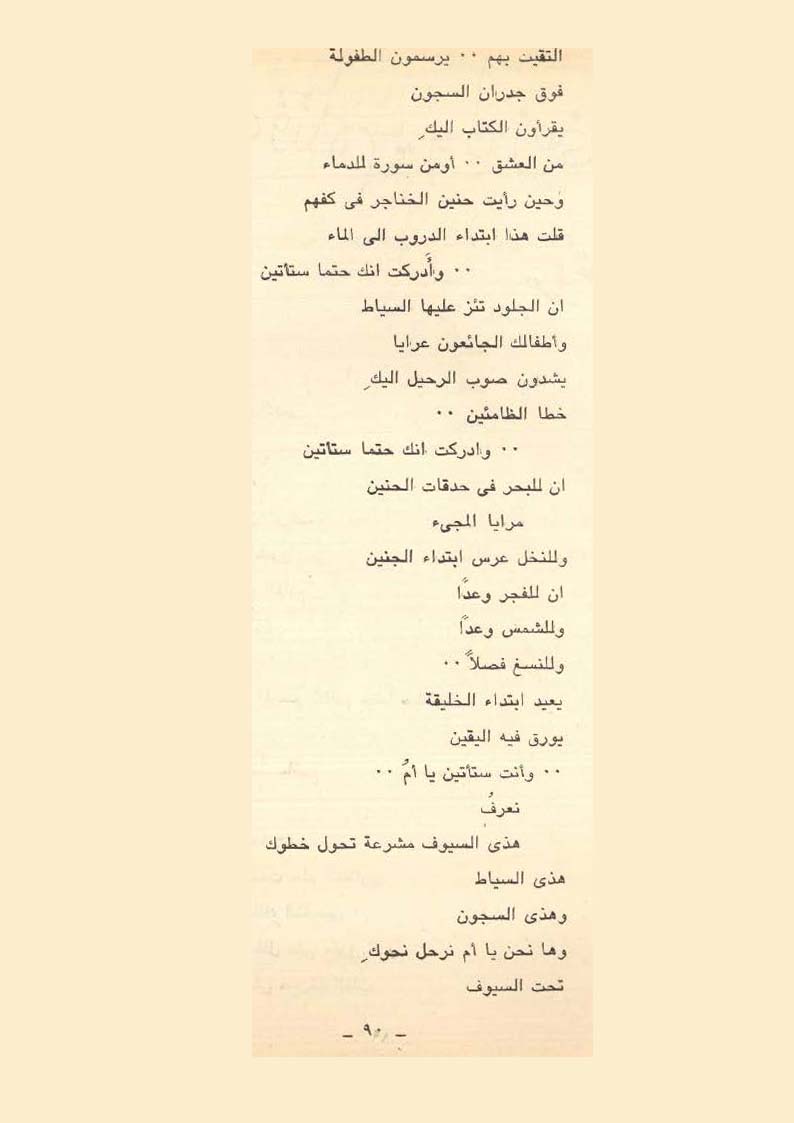 التقيت بهم ٠٠ يرسمون الطفولة
فوق جدران السجون
يقرأون الكتاب اليكِ
من العشق ٠٠ أومن سورة للدماء
وحين رأيت حنين الخناجر فى كفهم
قلت هذا ابتداء الدروب الى الماء
٠٠ وأَدركت انك حتما ستأتين
ان الجلود تئز عليها السياط
وأطفالك الجائعون عرايا
يشدون صوب الرحيل اليكِ
خطا الظامئين ٠٠
٠٠ وادركت انك حتما ستأتين
ان للبحر فى حدقات الحنين
مرايا المجىء
وللنخل عرس ابتداء الجنين
ان للفجر وعدًا
وللشمس وعدًا
وللنسغ فصلاً ٠٠
يعيد ابتداء الخليقة
يورق فيه اليقين
٠٠ وأنت ستأتين يا أمُ ٠٠
نعرفُ
هذى السيوف مشرعة تحول خطوك
هذى السياط
وهذى السجون
وها نحن يا أم نرحل نحوكِ
تحت السيوف
_ ٩٠ _